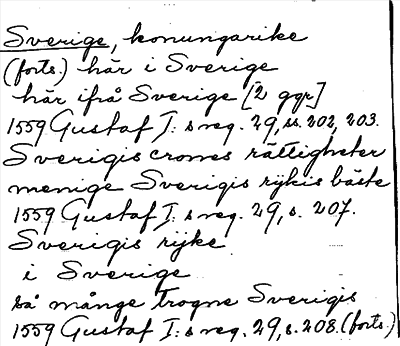 Sverige, konungarike
(forts.) här i Sverige
här ifrå Sverige [2 ggr]
1559 Gustaf I: s reg. 29, ss. 202, 203.
Sverigis crones rättigheter
menige Sverigis rykis bäste
1559 Gustaf I: s reg. 29, s. 207.
Sverigis ryke
i Sverige
så månge trogne Sverigis
1559 Gustaf I: s reg. 29, s. 208. (forts.)